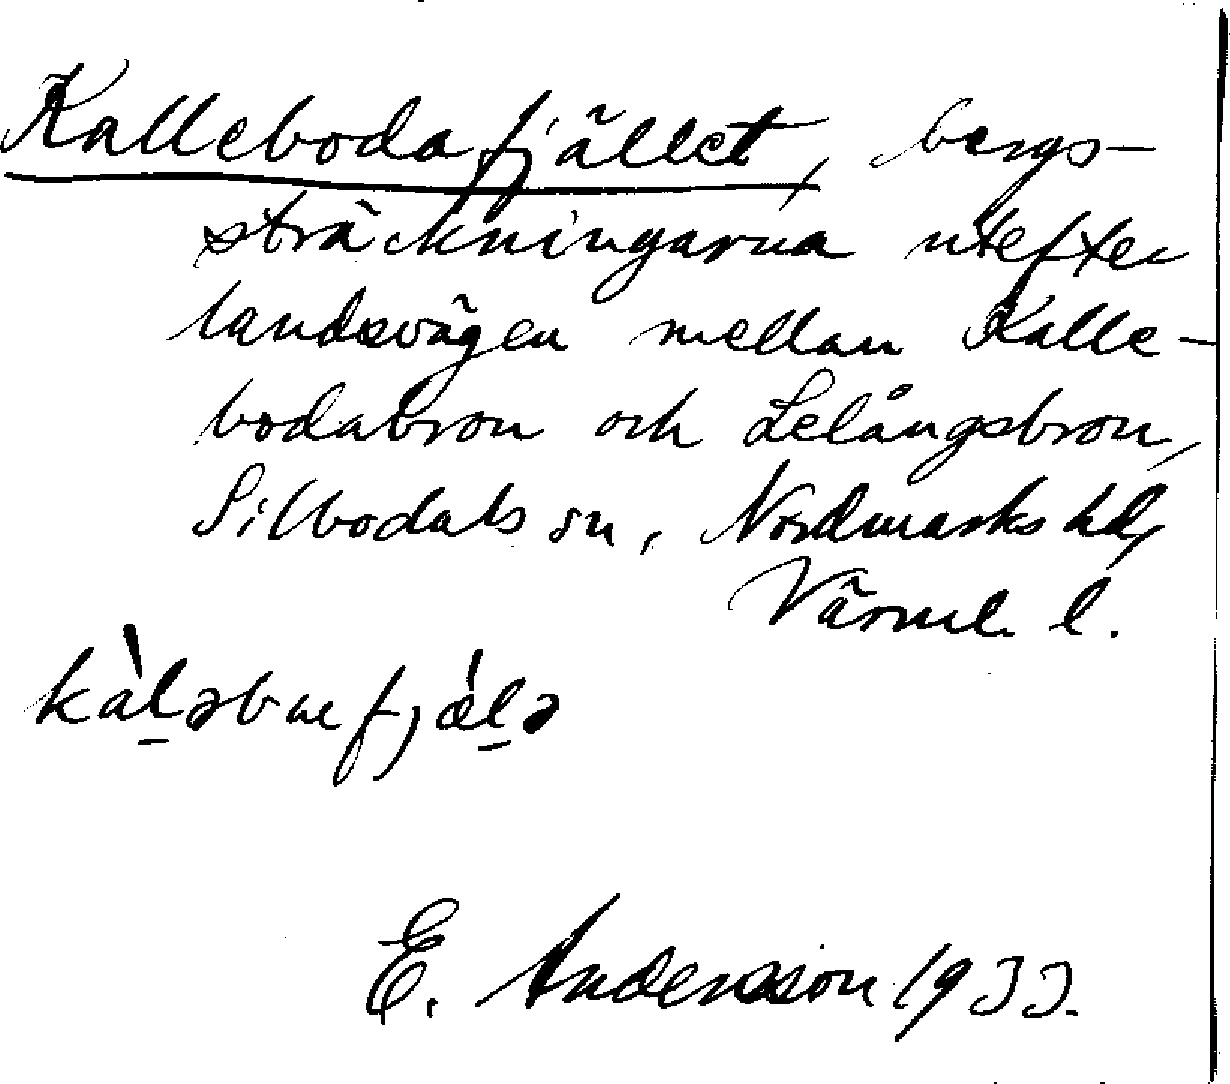 Kallebodafjället, bergs-
sträckningarna utefter
landsvägen mellan Kalle-
bodabron och Lelångsbron,
Silbodals sn, Nordmarks hd,
Värml. l.
kàl̠əbwefjæ̀l̠ə
E. Andersson 1933.